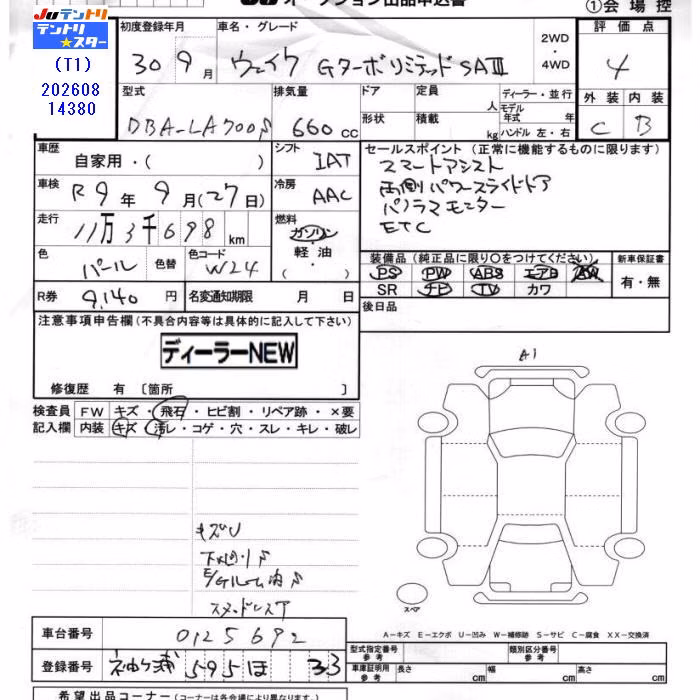 オークション出品申込書
①会場控
JUテントリ
テントリ
★スター
(T1)
202608
14380
初度登録年月 車名・グレード 2WD・4WD 評価点
30 9月 ウェイク Gターボリミテッド SAⅢ 4
型式 排気量 ドア 定員 人 ディーラー・並行 外装 内装
DBA-LA700S 660cc 形状 積載 kg モデル年式 年式 ハンドル 左・右 C B
車歴 自家用・( ) シフト IAT
セールスポイント (正常に機能するものに限ります)
スマートアシスト
両側パワースライドドア
パノラマモニター
ETC
車検 R9年9月(27日) 冷房 AAC
走行 11万3千698km 燃料 ガソリン・軽油・( )
色 パール 色替 色コード W24
装備品 (純正品に限り〇をつけてください) 新車保証書
PS PW ABS エアB AW 有・無
SR ナビ TV カワ
R券 9,140円 名変通知期限 月 日
後日品
注意事項申告欄(不具合内容等は具体的に記入して下さい)
ディーラーNEW
修復歴 有 〔箇所 〕
A1
検査員 FW キズ・飛石・ヒビ割・リペア跡・×要
記入欄 内装 キズ・汚レ・コゲ・穴・スレ・キレ・破レ
キズU
下回りS
E/Gルーム内S
スタッドレスタイヤ
スペア
A-キズ E-エクボ U-凹み W-補修跡 S-サビ C-腐食 XX-交換済
車台番号 0125692
型式指定番号 類別区分番号
登録番号 袖ヶ浦 595 ほ 33
車庫証明用参考 長さ cm 幅 cm 高さ cm
希望出品コーナー(コーナーは各会場により異なります。)